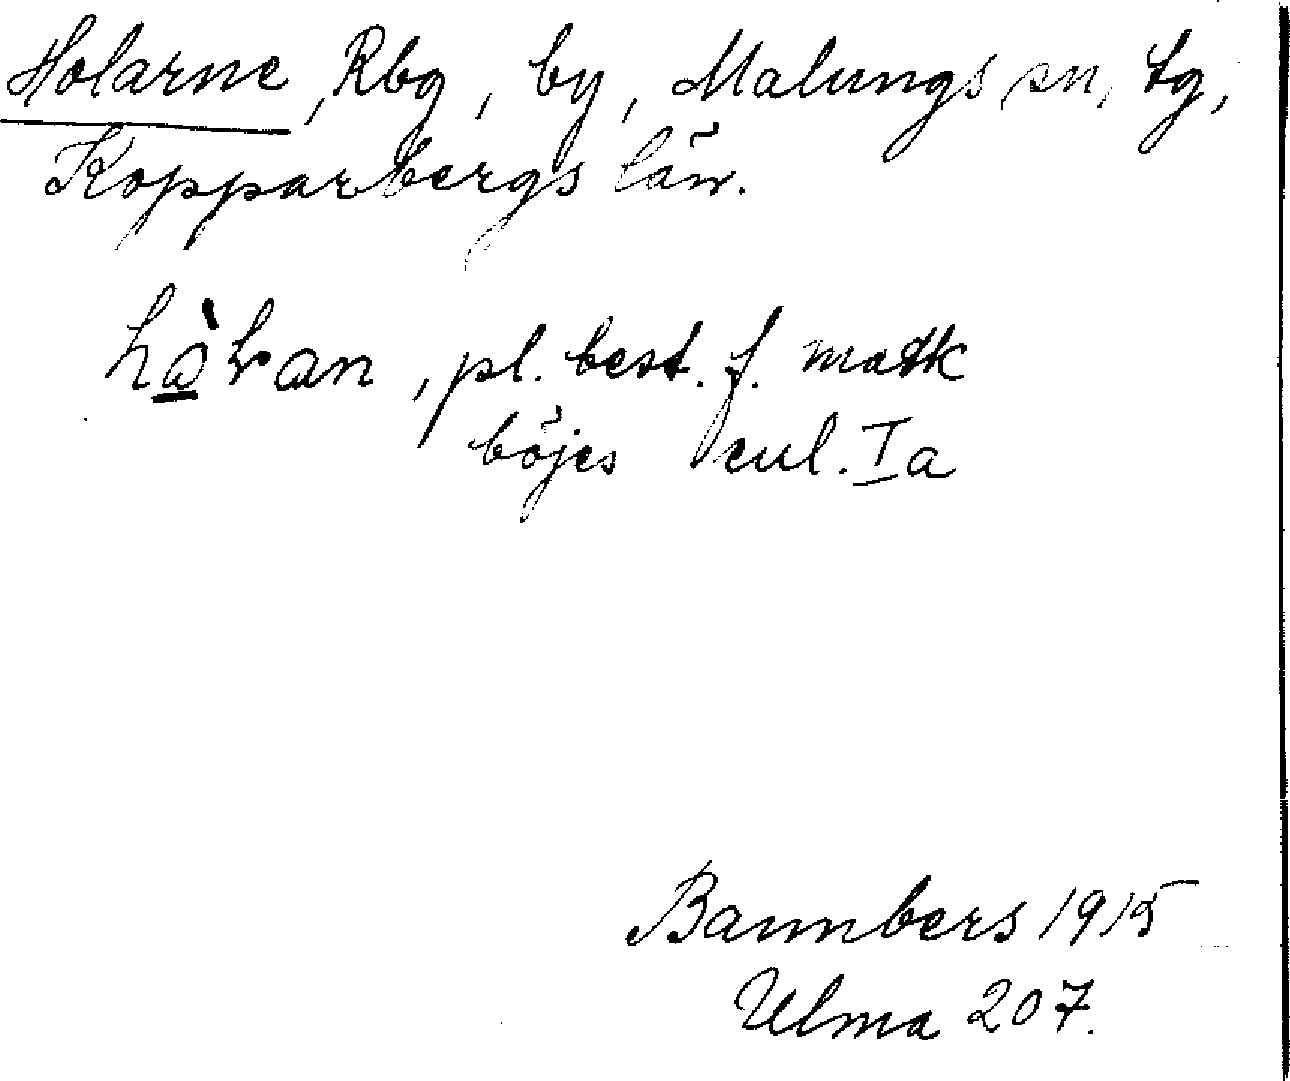 Holarne, Rbg, by, Malungs sn, tg,
Kopparbergs län.
hàƚan, pl. best. f. mask
böjes enl. Ia
Bannbers 1915
Ulma 207.